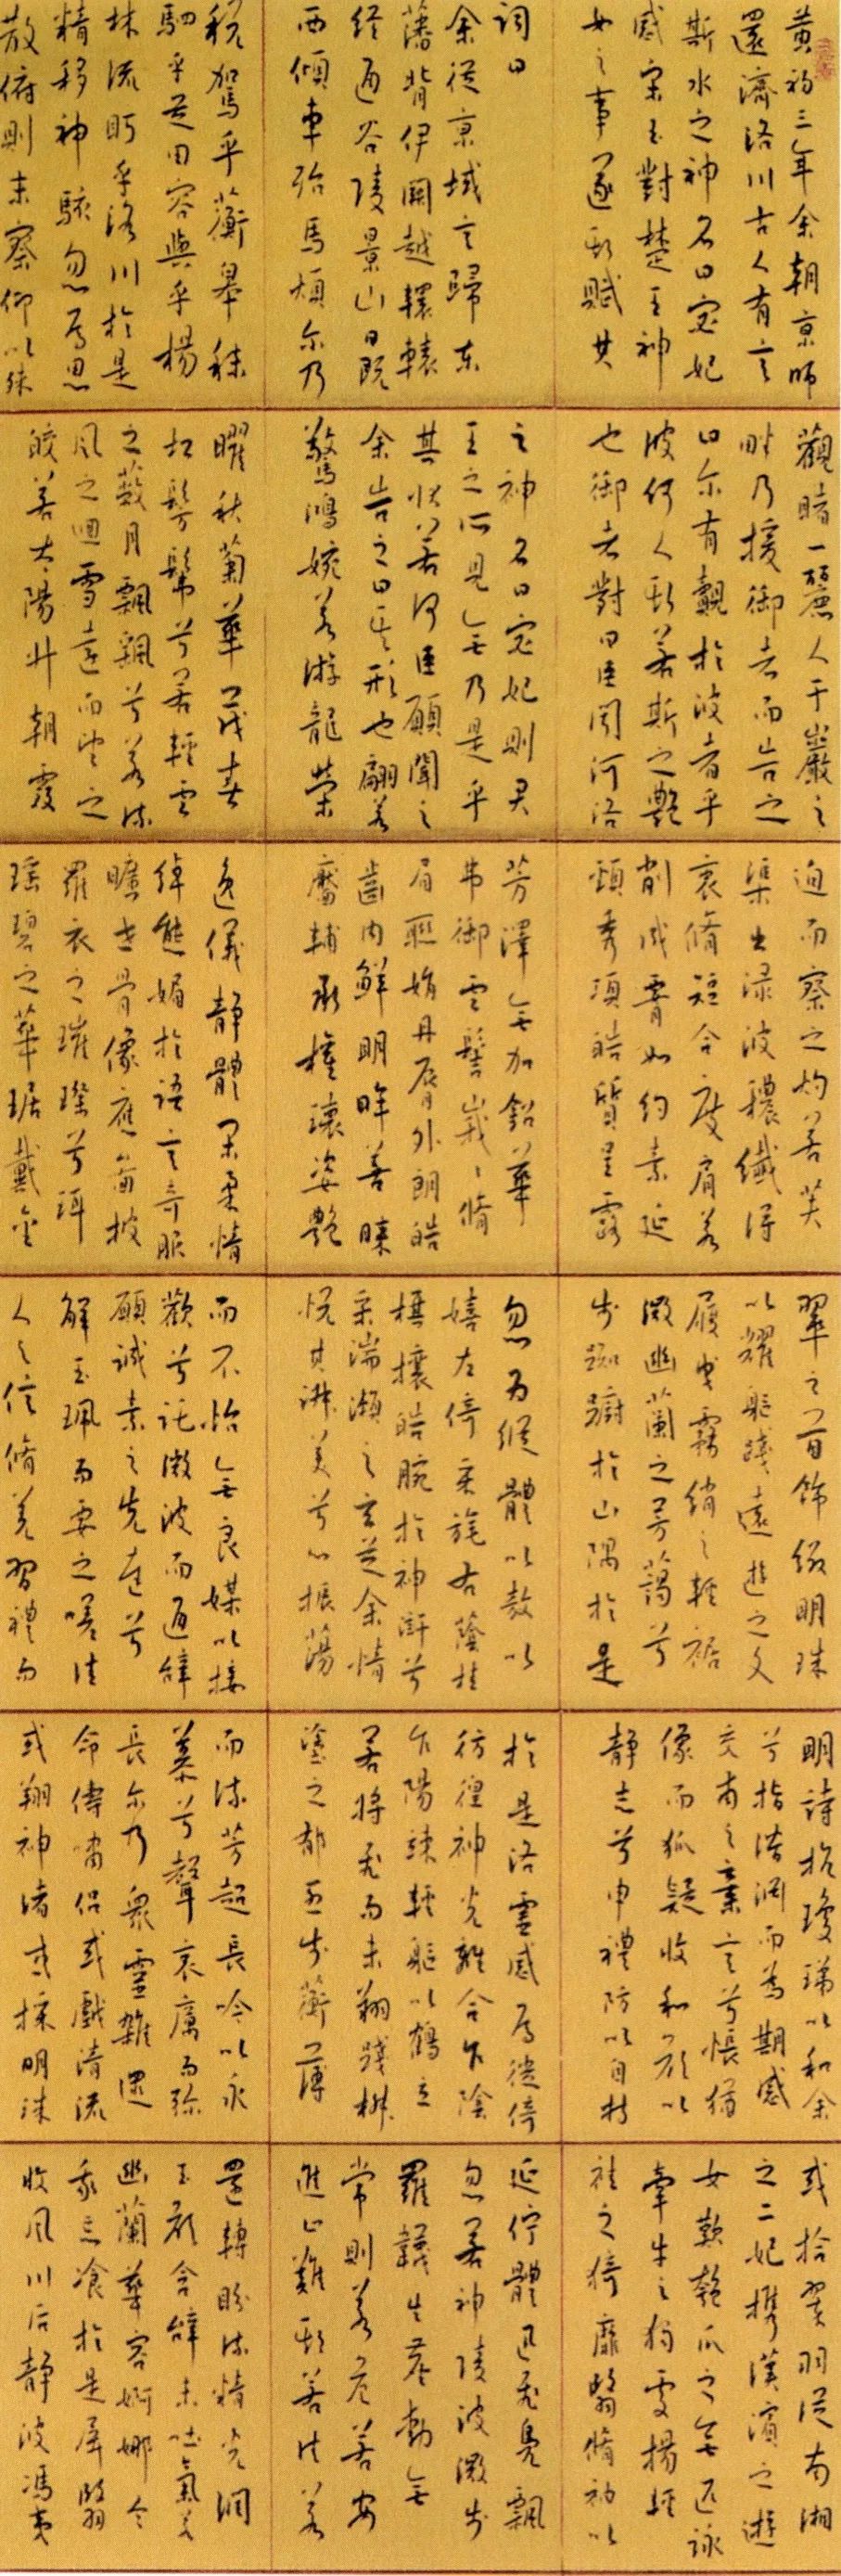 黄初三年余朝京師
還濟洛川古人有言
斯水之神名曰宓妃
感宋玉對楚王神
女之事遂斯賦其
詞曰
余從京域言歸東
藩背伊闕越轘轅
經通谷陵景山日既
西傾車殆馬煩尔乃
税駕乎蘅皋秣
駟乎芝田容與乎楊
林流眄乎洛川於是
精移神駭忽焉思
散俯則未察仰以殊
觀睹一麗人于巖之
畔乃援御者而告之
曰尔有覿於彼者乎
彼何人斯若斯之艷
也御者對曰臣聞河洛
之神名曰宓妃則君
王之所見無乃是乎
其狀若何臣願聞之
余告之曰其形也翩若
驚鴻婉若游龍榮
曜秋菊華茂春
松髣髴兮若輕雲
之蔽月飄飄兮若流
風之迴雪遠而望之
皎若太陽升朝霞
迫而察之灼若芙
渠出淥波穠纖得
衷脩短合度肩若
削成腰如約素延
頸秀項皓質呈露
芳澤無加鉛華
弗御雲髻峩峩脩
眉聯娟丹脣外朗皓
齒内鮮明眸善睞
靨輔承權瓌姿艷
逸儀靜體閑柔情
綽態媚於語言奇服
曠世骨像應圖披
羅衣之璀璨兮珥
瑤碧之華琚戴金
翠之首飾綴明珠
以耀軀踐遠遊之文
履曳霧綃之輕裾
微幽蘭之芳藹兮
步踟躕於山隅於是
忽焉縱體以敖以
嬉左倚采旄右蔭桂
旗攘皓腕於神滸兮
采湍瀨之玄芝余情
悦其淑美兮心振蕩
而不怡無良媒以接
歡兮託微波而通辭
願誠素之先達兮
解玉珮而要之嗟佳
人之信脩羌習禮而
明詩抗瓊珶以和余
兮指潛淵而為期感
交甫之棄言兮悵猶
像而狐疑收和顏以
靜志兮申禮防以自持
於是洛靈感焉徙倚
彷徨神光離合乍陰
乍陽竦輕軀以鶴立
若將飛而未翔踐椒
塗之郁烈步蘅薄
而流芳超長吟以永
慕兮聲哀厲而彌
長尔乃衆靈雜遝
命儔嘯侶或戲清流
或翔神渚或採明珠
或拾翠羽從南湘
之二妃攜漢濱之遊
女歎匏瓜之無匹詠
牽牛之獨處揚輕
袿之猗靡翳脩袖以
延佇體迅飛鳧飄
忽若神陵波微步
羅韈生塵動無
常則若危若安
進止難期若往若
還轉眄流精光潤
玉顏含辭未吐氣若
幽蘭華容婀娜令
我忘飡於是屏翳
收風川后靜波馮夷